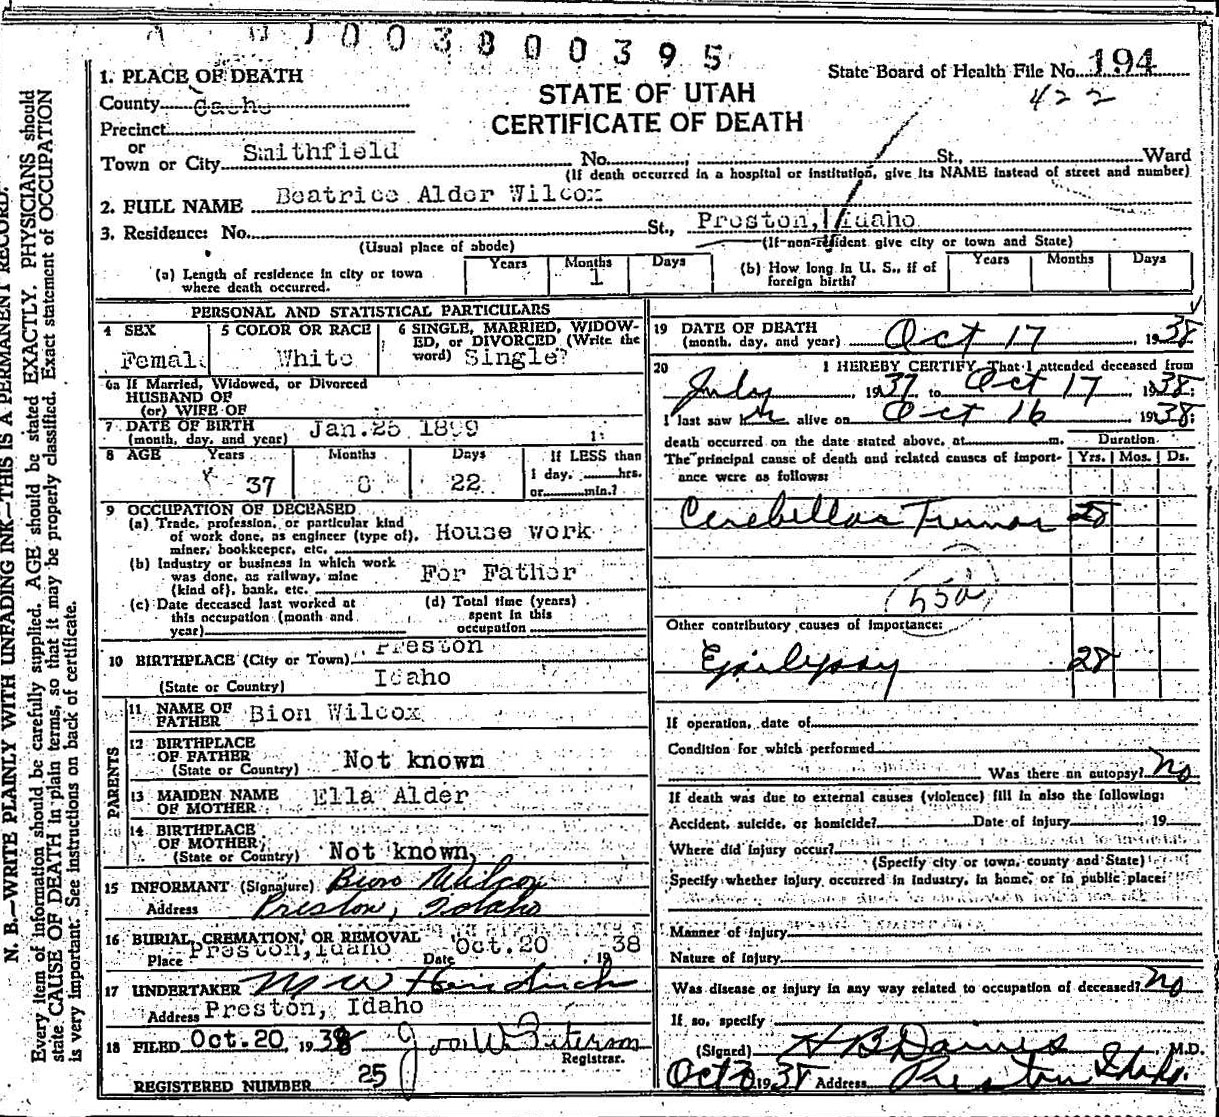 0 1 0 0 3 8 0 0 3 9 5
State Board of Health File No. 194
422
STATE OF UTAH
CERTIFICATE OF DEATH
1. PLACE OF DEATH
County Cache
Precinct
or
Town or City Smithfield No. St., Ward
(If death occurred in a hospital or institution, give its NAME instead of street and number)
2. FULL NAME Beatrice Alder Wilcox
3. Residence: No. St., Preston, Idaho
(Usual place of abode) (If non-resident give city or town and State)
(a) Length of residence in city or town where death occurred. Years Months 1 Days
(b) How long in U. S., if of foreign birth? Years Months Days
PERSONAL AND STATISTICAL PARTICULARS
4 SEX Female
5 COLOR OR RACE White
6 SINGLE, MARRIED, WIDOWED, or DIVORCED (Write the word) Single
6a If Married, Widowed, or Divorced
HUSBAND OF
(or) WIFE OF
7 DATE OF BIRTH
(month, day, and year) Jan. 25 1899
8 AGE Years Months Days If LESS than
37 8 22 1 day, hrs.
or min.?
9 OCCUPATION OF DECEASED
(a) Trade, profession, or particular kind
of work done, as engineer (type of), House work
miner, bookkeeper, etc.
(b) Industry or business in which work
was done, as railway, mine For Father
(kind of), bank, etc.
(c) Date deceased last worked at
this occupation (month and
year)
(d) Total time (years)
spent in this
occupation
10 BIRTHPLACE (City or Town) Preston
(State or Country) Idaho
PARENTS
11 NAME OF
FATHER Bion Wilcox
12 BIRTHPLACE
OF FATHER
(State or Country) Not known
13 MAIDEN NAME
OF MOTHER Ella Alder
14 BIRTHPLACE
OF MOTHER
(State or Country) Not known
15 INFORMANT (Signature) Bion Wilcox
Address Preston, Idaho
16 BURIAL, CREMATION, OR REMOVAL
Place Preston, Idaho Date Oct. 20, 1938
17 UNDERTAKER
Address Preston, Idaho
18 FILED Oct. 20, 1938
Registrar.
REGISTERED NUMBER 25
19 DATE OF DEATH
(month, day, and year) Oct 17 1938
20 I HEREBY CERTIFY, That I attended deceased from
July 1937 to Oct 17 1938;
I last saw her alive on Oct 16 1938;
death occurred on the date stated above, at m. Duration
The principal cause of death and related causes of importance were as follows: Yrs. Mos. Ds.
Cerebellar Tumor 28
55d
Other contributory causes of importance:
Epilepsy 28
If operation, date of
Condition for which performed
Was there an autopsy? No
If death was due to external causes (violence) fill in also the following:
Accident, suicide, or homicide? Date of injury 19
Where did injury occur?
(Specify city or town, county and State)
Specify whether injury occurred in industry, in home, or in public place:
Manner of injury
Nature of injury
Was disease or injury in any way related to occupation of deceased? No
If so, specify
(Signed) M.D.
1938 Address Preston Idaho
N. B.—WRITE PLAINLY WITH UNFADING INK—THIS IS A PERMANENT RECORD.
Every item of information should be carefully supplied. AGE should be stated EXACTLY. PHYSICIANS should
state CAUSE OF DEATH in plain terms, so that it may be properly classified. Exact statement of OCCUPATION
is very important. See instructions on back of certificate.